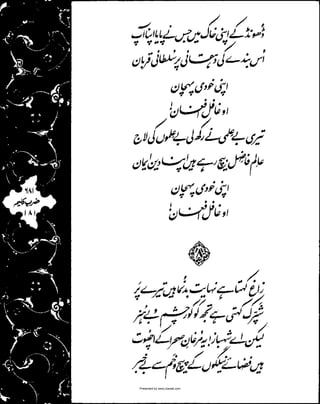 ڈھونڈ کے اپنی خاک میں جس نے پایا اپنا آپ
اس بندے کی دہقانی پر سلطانی قربان
اپنی خودی پہچان
او غافل افغان!
تیری بے علمی نے رکھ لی بے علموں کی لاج
عالم فاضل بیچ رہے ہیں اپنا دین ایمان
اپنی خودی پہچان
او غافل افغان!
۶۸۱
ضرب کلیم
۱۸۱
زاغ کہتا ہے نہایت بدنما ہیں تیرے پر
شپرک کہتی ہے تجھ کو کور چشم و بے ہنر
لیکن اے شہباز! یہ مرغان صحرا کے اچھوت
ہیں فضائے نیلگوں کے پیچ و خم سے بے خبر
Presented by www.ziaraat.com